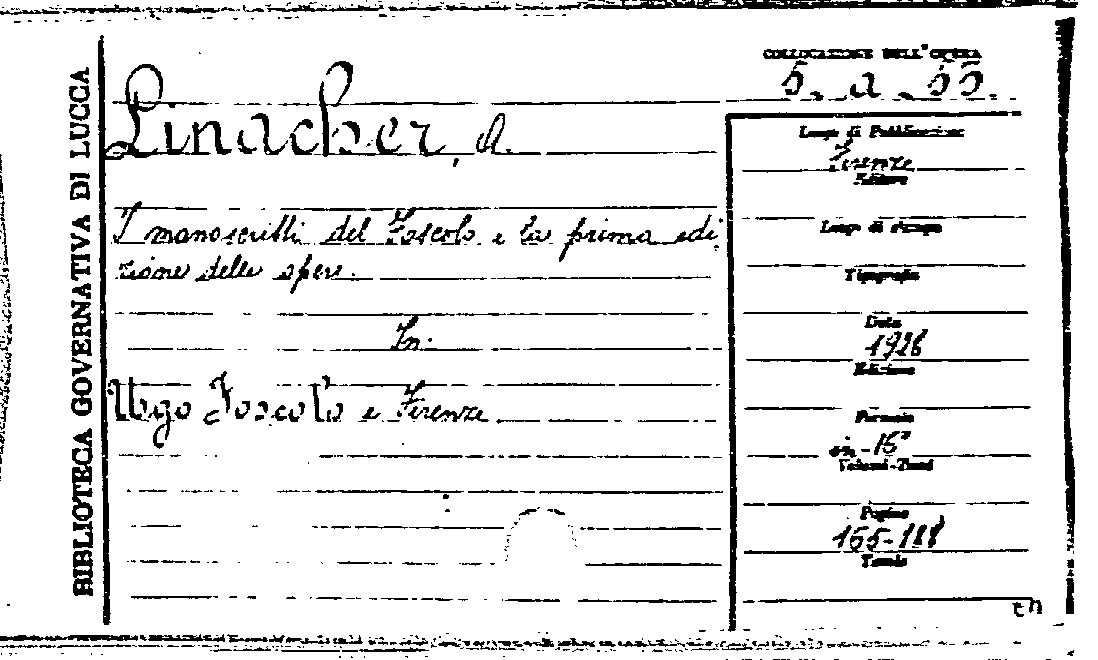 BIBLIOTECA GOVERNATIVA DI LUCCA
COLLOCAZIONE DELL'OPERA
5. a. 55.
Linacher, A.
I manoscritti del Foscolo e la prima edi
zione delle opere.
In:
Ugo Foscolo e Firenze
Luogo di Pubblicazione
Firenze
Editore
Luogo di stampa
Tipografia
Data
1928
Edizione
Formato
in-16°
Volumi-Tomi
Pagine
165-188
Tavole